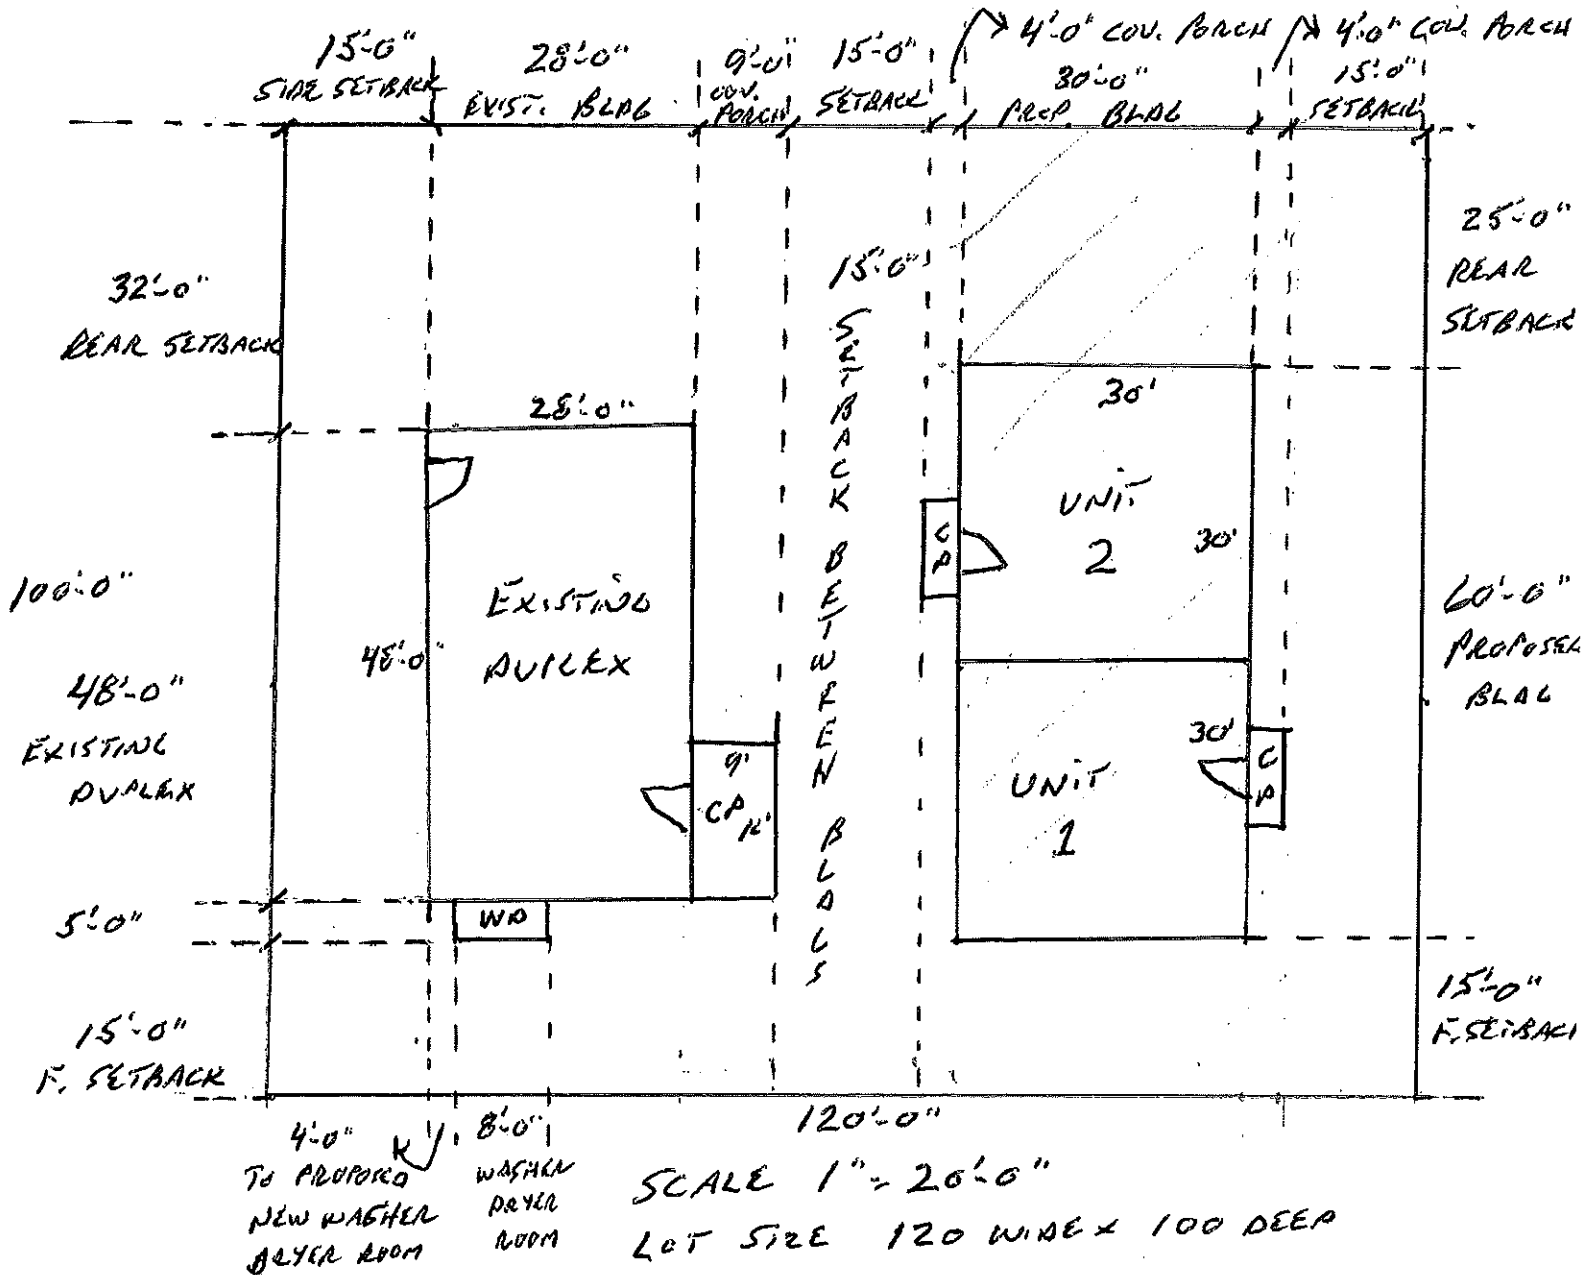 15'-0"
SIDE SETBACK
28'-0"
EXIST. BLDG
9'-0"
COV.
PORCH
15'-0"
SETBACK
4'-0" COV. PORCH
30'-0"
PROP. BLDG
4'-0" COV. PORCH
15'-0"
SETBACK
32'-0"
REAR SETBACK
25'-0"
REAR
SETBACK
28'-0"
15'-0"
SETBACK BETWEEN BLDGS
30'
UNIT
2
30'
CP
100'-0"
EXISTING
DUPLEX
48'-0"
48'-0"
EXISTING
DUPLEX
60'-0"
PROPOSED
BLDG
9'
CP
30'
UNIT
1
CP
5'-0"
WD
15'-0"
F. SETBACK
15'-0"
F. SETBACK
120'-0"
4'-0"
TO PROPOSED
NEW WASHER
DRYER ROOM
8'-0"
WASHER
DRYER
ROOM
SCALE 1" = 20'-0"
LOT SIZE 120 WIDE X 100 DEEP